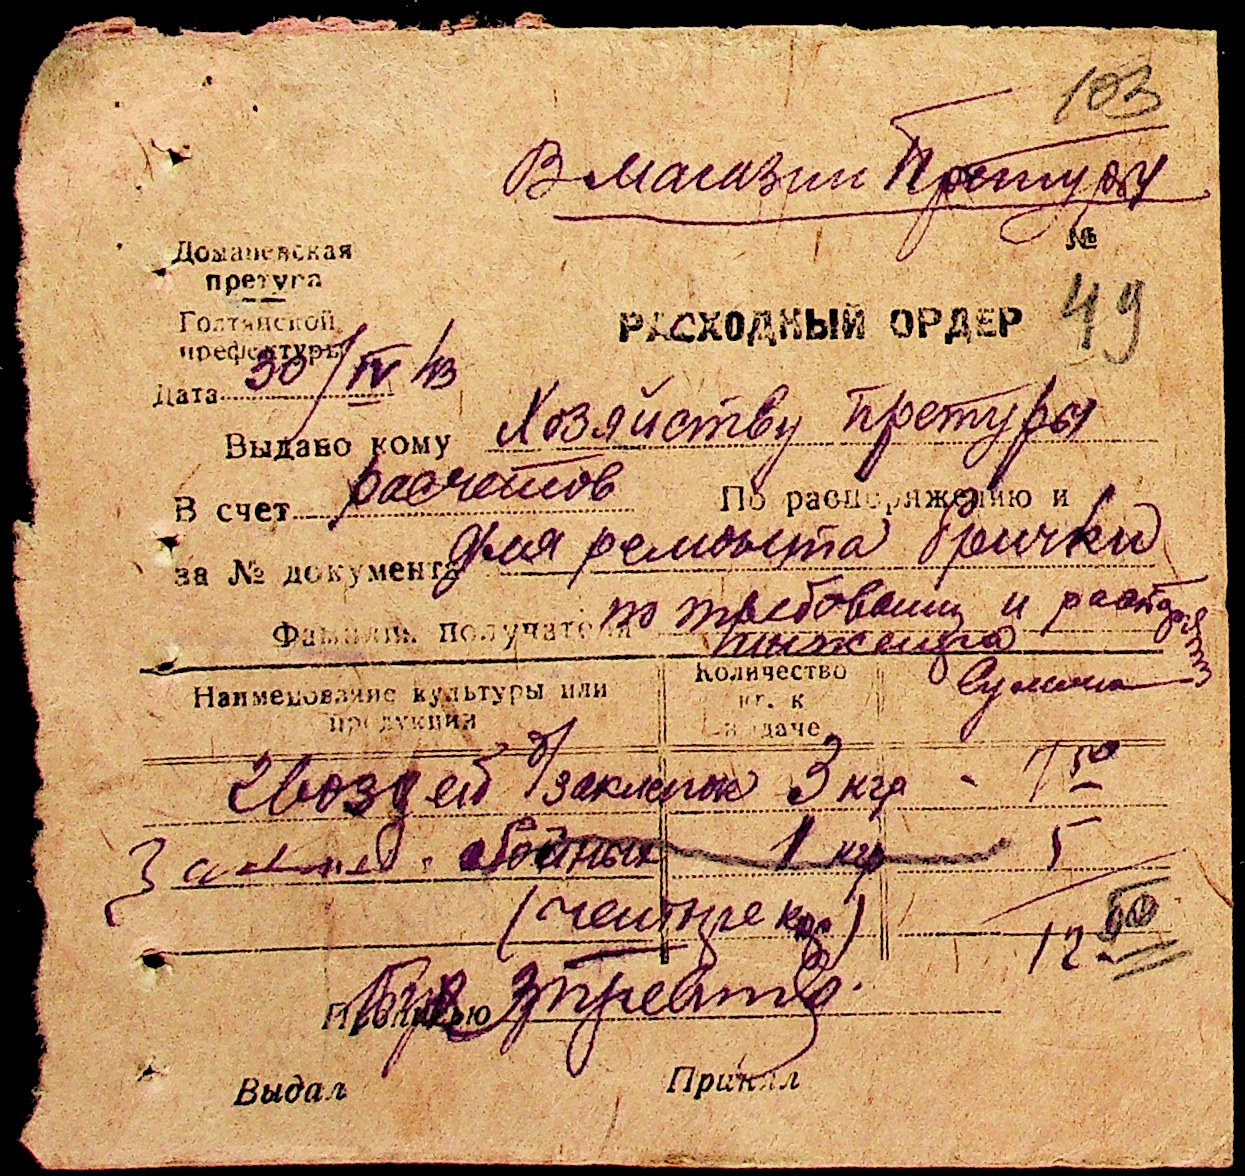 103
В магазин Претуры
№
49
Доманевская
претура
Голтянской
префектуры
РАСХОДНЫЙ ОРДЕР
Дата 30/IV 43
Выдано кому Хозяйству претуры
В счет расчетов По распоряжению и
за № документа для ремонта брички
Фамилия получателя по требованию и
Наименование культуры или
продукции
Количество
кг. к
выдаче
Сумма
гвоздей 3 кгр - 7 50
1 кгр 5
12 50
Прописью
Выдал Принял